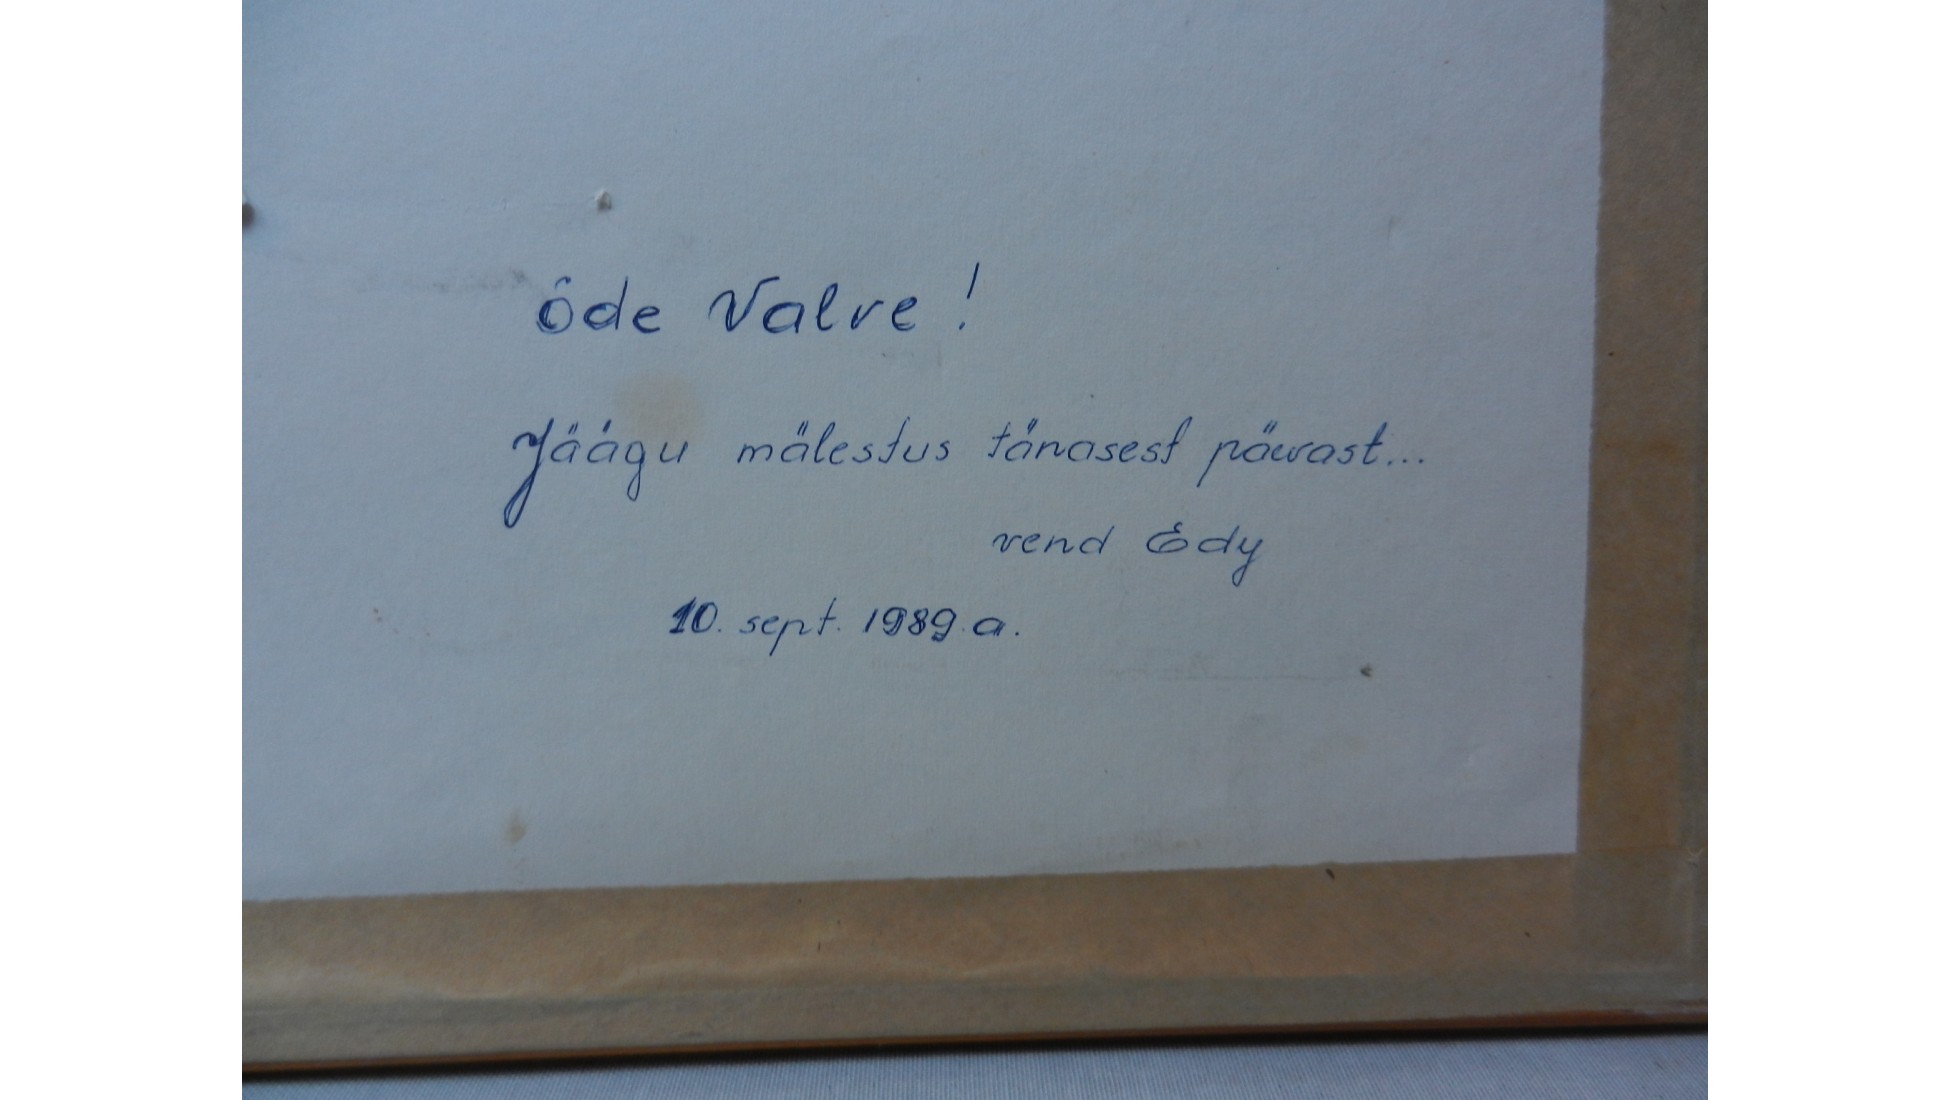 õde Valve!
Jäägu mälestus tänasest päevast...
vend Edy
10. sept. 1989.a.